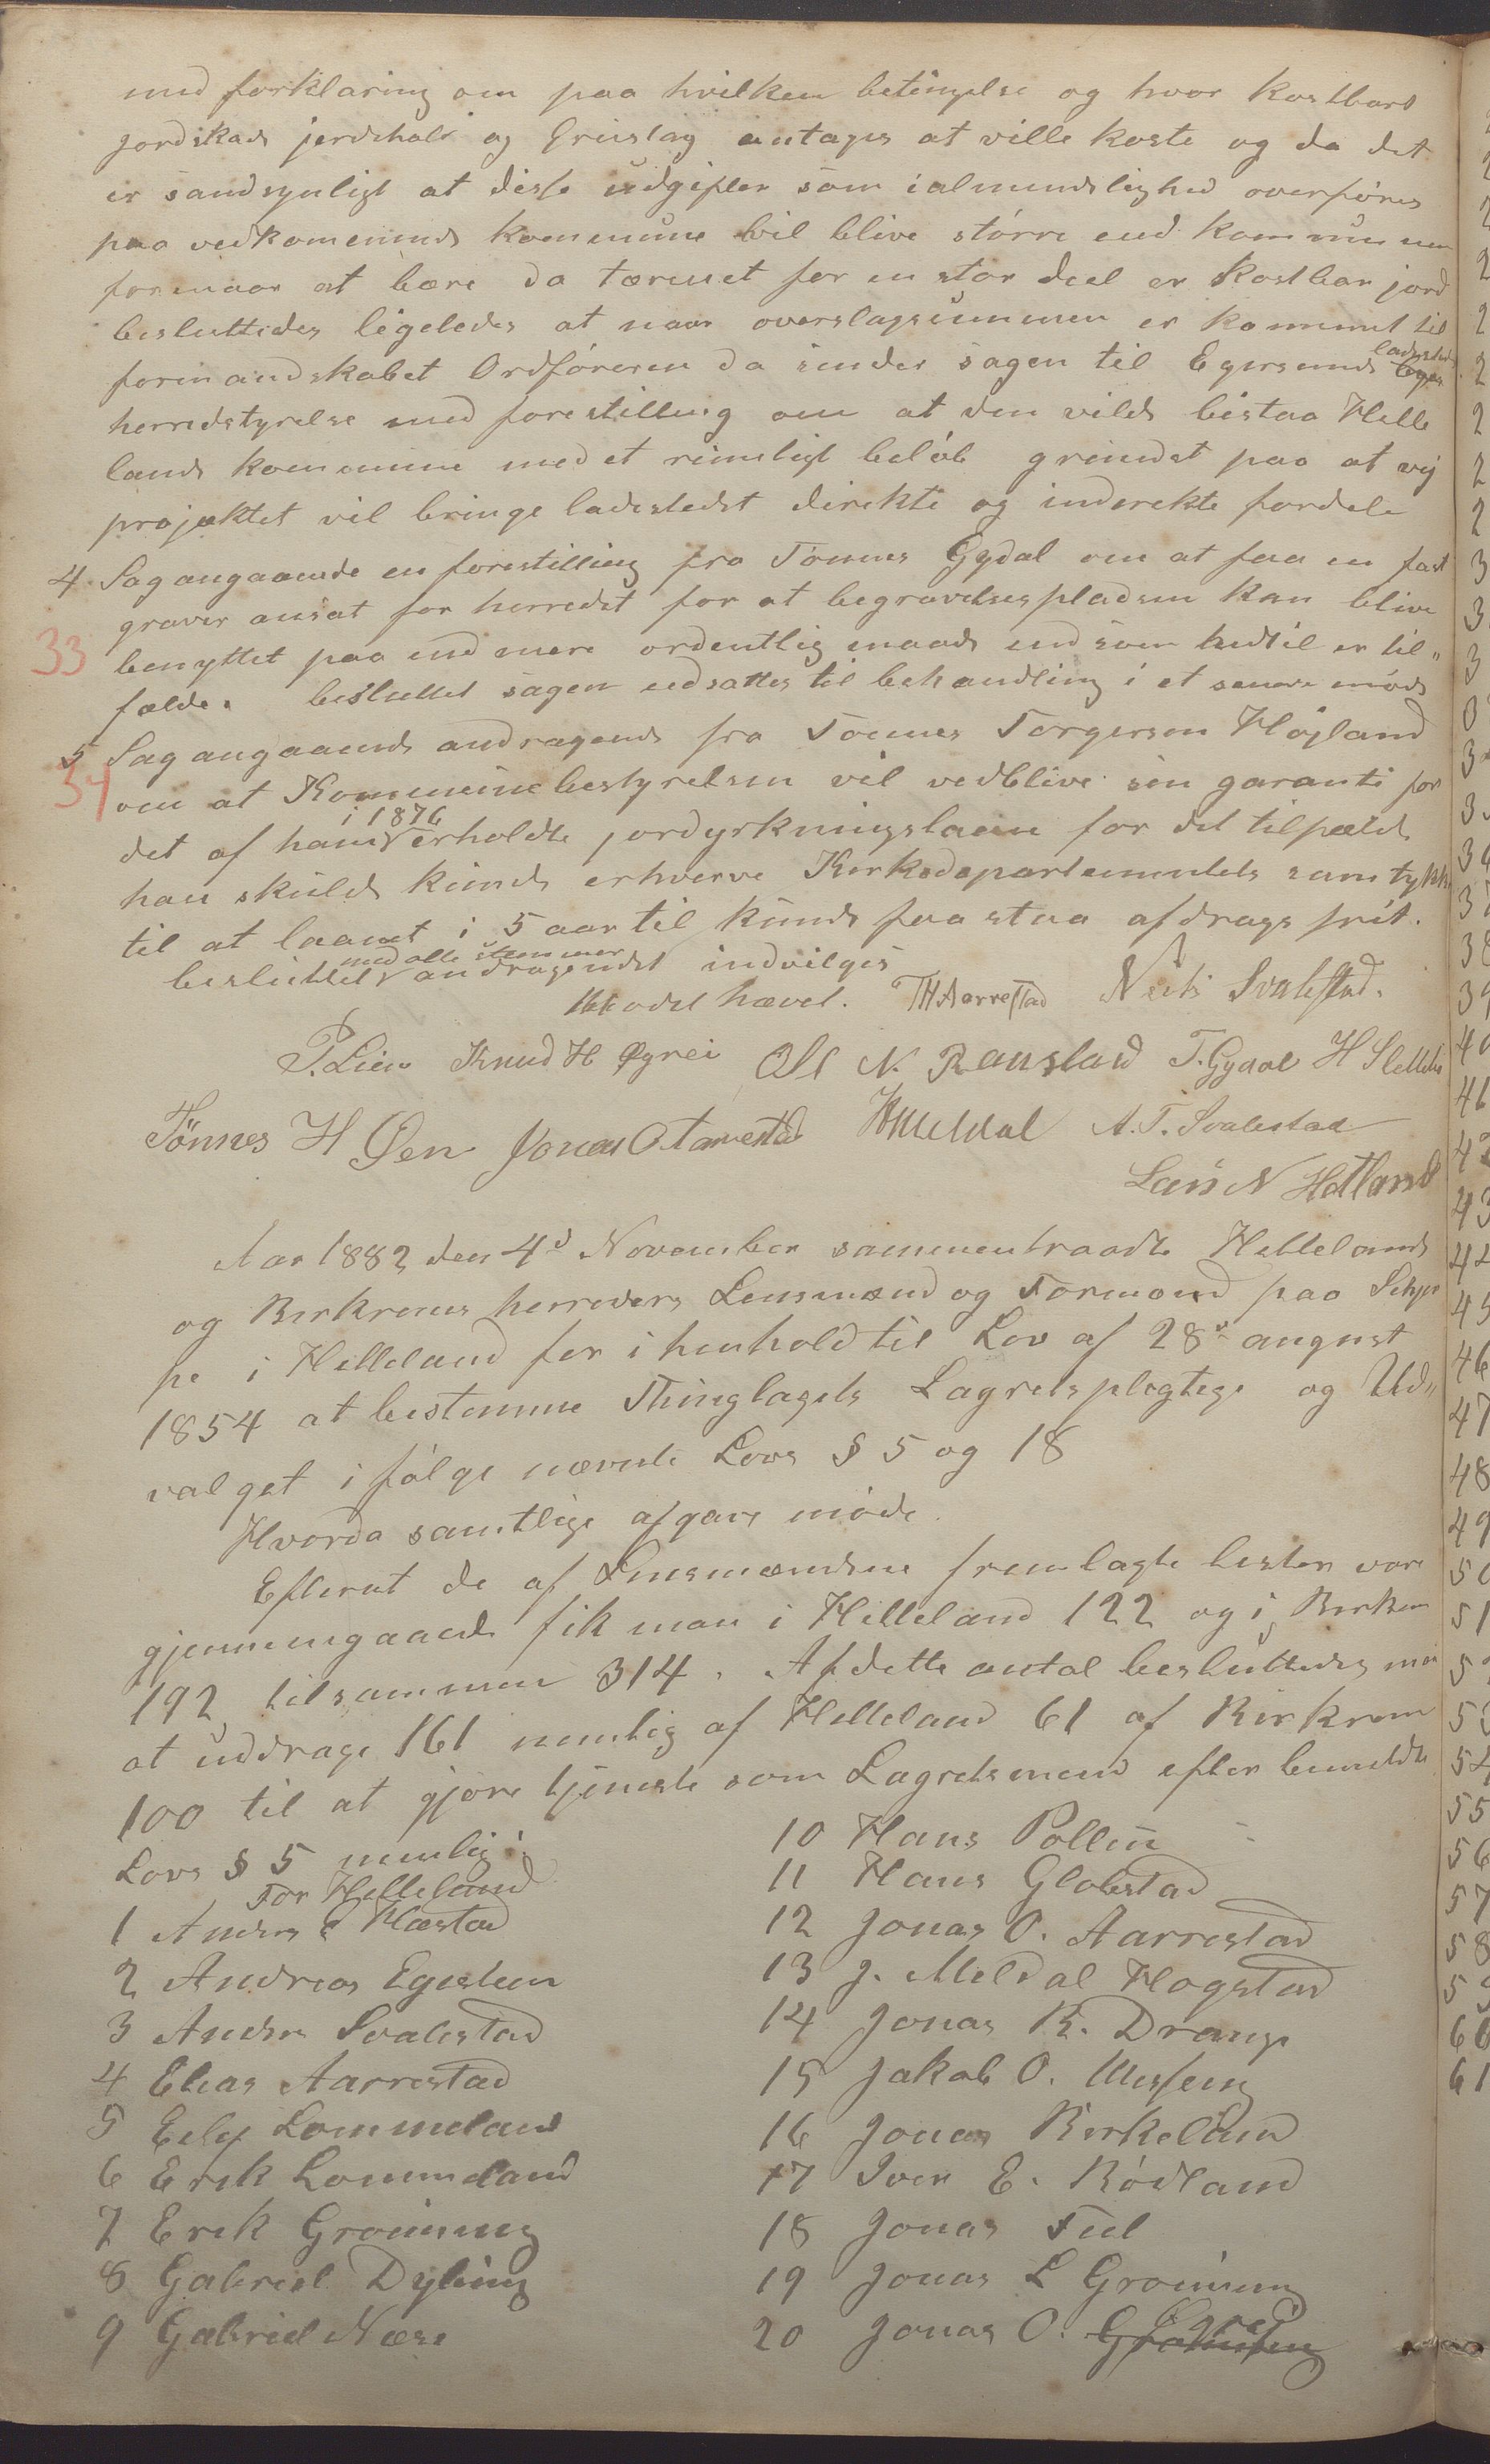 med forklaring om paa hvilken betingelse og hvor kostbart
jordskade jerdehold og Gruslag antages at ville koste og da det
er sandsynligt at disse udgifter som ialmindelighed overføres
paa vedkomende kommune vil blive større end kommunen
formaar at bære da tærenet for en stor deel er kostbar jord
besluttedes ligeledes at naar overslagsummen er kommet til
formandskabet Ordføreren da sender sagen til Egersunds ladesteds
herredstyrelse med forestilling om at den vilde bistaa Helle
lands kommune med et rimeligt beløb grundet paa at vej
projektet vil bringe ladestedet direkte og inderekte fordele
4 Sag angaaende en forestilling fra Tønnes Gydal om at faa en fast
graver ansat for herredet for at begravelsespladsen kan blive
33 benyttet paa end mere ordentlig maade end som hidtil er til"
fælde. besluttet sagen udsattes til behandling i et senere møde
5 Sag angaaende andragende fra Tønnes Torgersen Højland
34 om at Kommunebestyrelsen vil vedblive sin garanti for
det af ham i 1876 erholdte jordyrkningslaan for det tilfælde
han skulde kunde erhverve Kirkedepartementets samtykke
til at laanet i 5 aar til kunde faa staa afdrags frit.
besluttet med alle stemmer andragendet indvilges
Modet hævet. TH Aarrestad Nils Svalestad.
P. Lien Knud H Øgrei Ole N. Ramsland T. Gydal H Slettebø
Tönnes H Øen Jonas O Aarrestad H Meldal A. T. Svalestad
Lars N Hetland
Aar 1882 den 4d November sammentraadte Hellelands
og Birkrems herreders Lensmænd og Formænd paa Skjer
pe i Helleland for i henhold til Lov af 28de august
1854 at bestemme Thinglagets Lagretsplegtige og Ud"
valget i følge nævnte Lovs § 5 og 18
Hvorda samtlige afgave møde.
Efterat de af Lensmændene fremlagte lister vare
gjennemgaaede fik man i Helleland 122 og i Birkrem
192 tilsammen 314. Af dette antal besluttedes man
at uddrage 161 nemlig af Helleland 61 af Birkrem
100 til at gjøre tjeneste som Lagretsmænd efter bemeldte
Lovs § 5 nemlig:
For Helleland
1 Anders E Hæstad
2 Andreas Egesteen
3 Anders Svalestad
4 Elias Aarrestad
5 Eilef Lommeland
6 Erik Lommeland
7 Erik Grøning
8 Gabriel Dybing
9 Gabriel Næse
10 Hans Pollen
11 Hans Globstad
12 Jonas O. Aarrestad
13 J. Meldal Hogstad
14 Jonas R. Drange
15 Jakob O.
16 Jonas Birkeland
17 Iver E. Rødland
18 Jonas Fiil
19 Jonas L Grøning
20 Jonas O. Øgrei